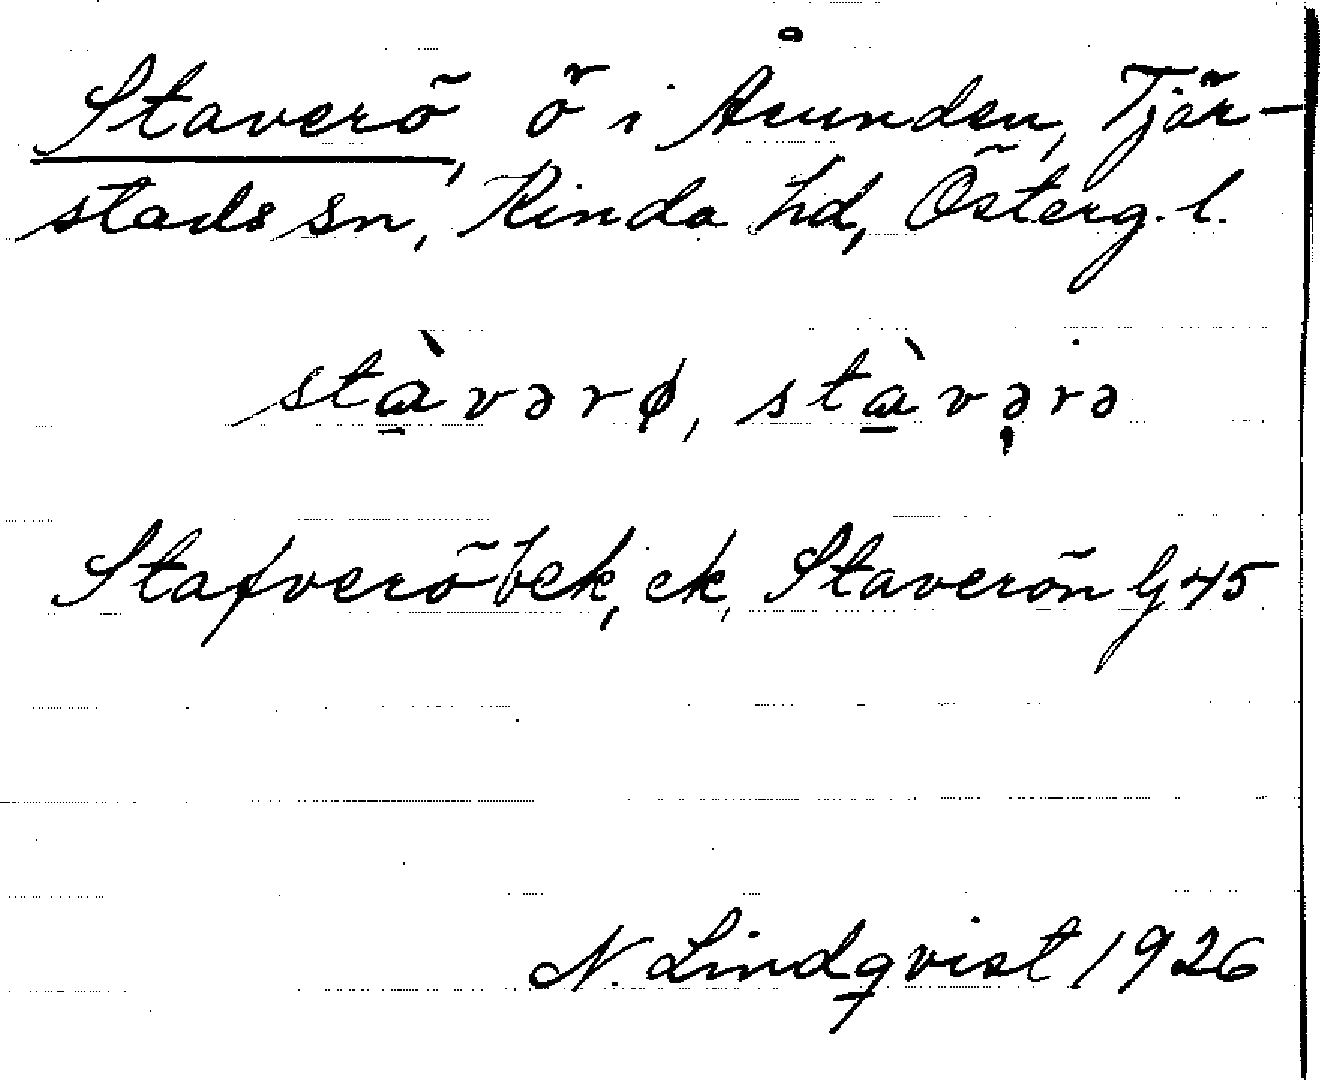 Staverö, ö i Åsunden, Tjär-
stads sn, Kinda hd, Österg. l.
stàvərø, stàvərə
Stafveröbek, ek, Staverön G 45
N. Lindqvist 1926